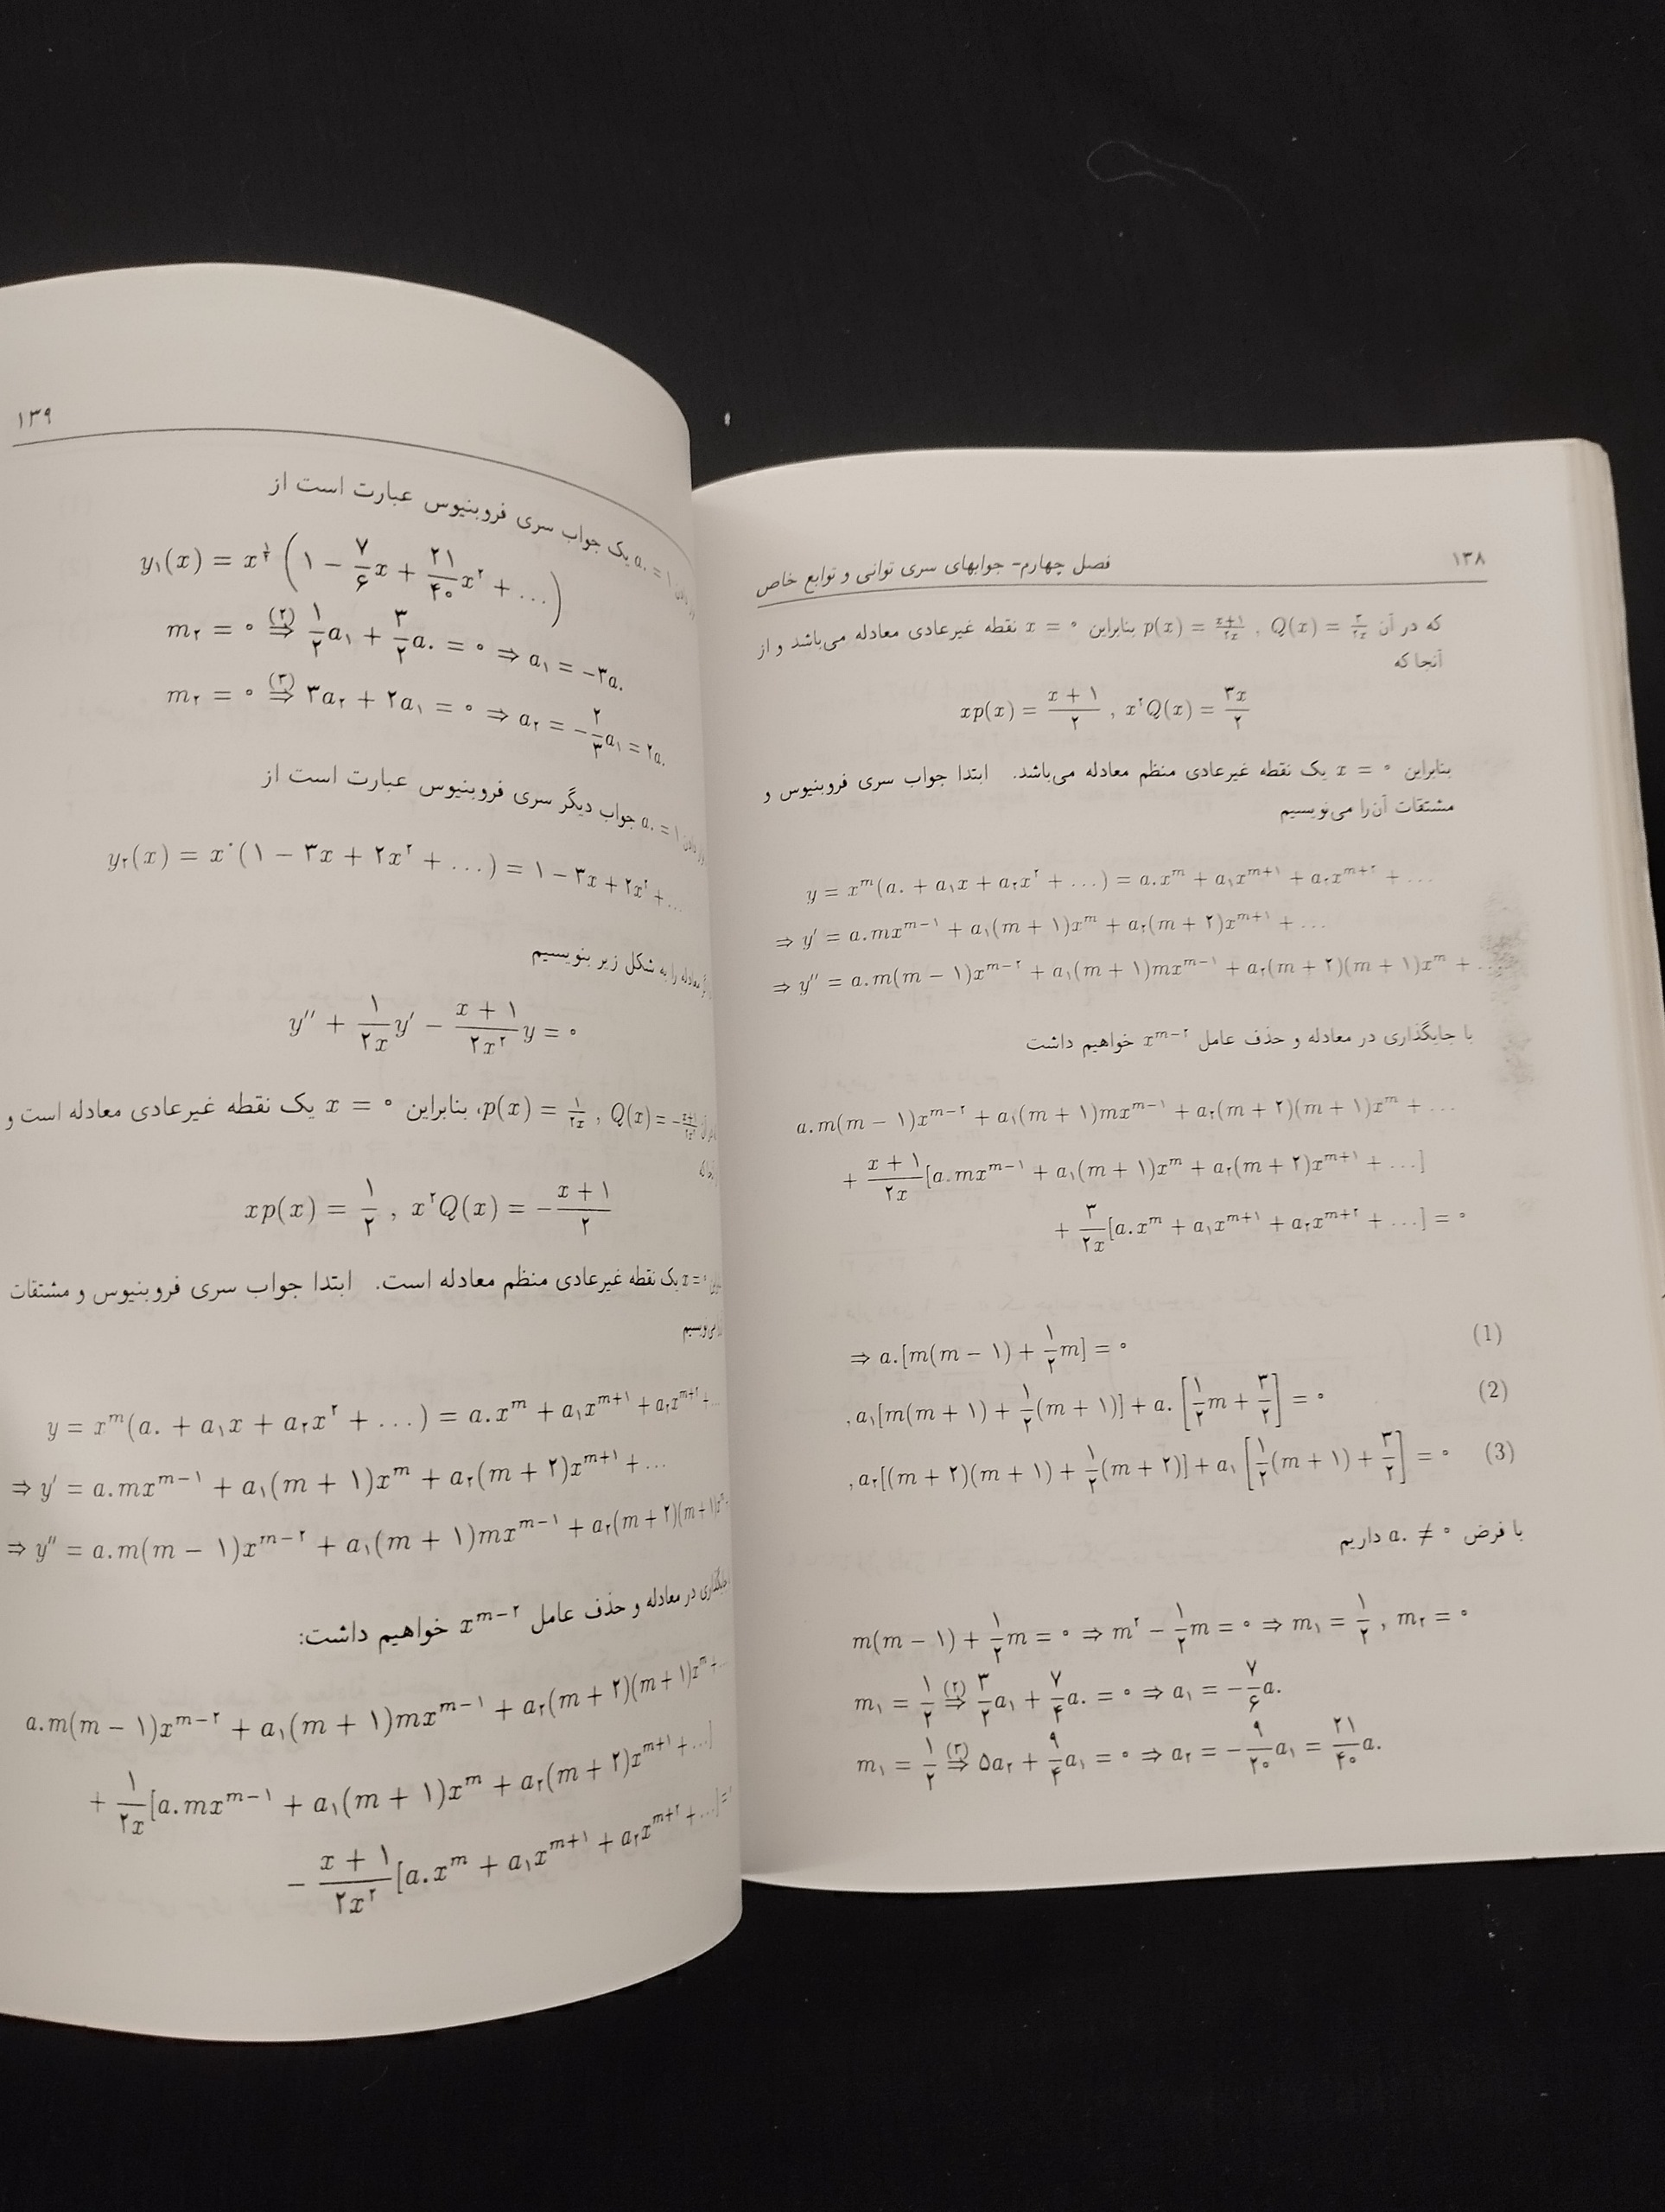 ۱۳۸ فصل چهارم- جوابهای سری توانی و توابع خاص
که در آن p(x) = \frac{x+۱}{۲x} , Q(x) = \frac{۳}{۲x} بنابراین x = ۰ نقطه غیرعادی معادله می‌باشد و از
آنجا که
xp(x) = \frac{x+۱}{۲} , x^۲Q(x) = \frac{۳x}{۲}
بنابراین x = ۰ یک نقطه غیرعادی منظم معادله می‌باشد. ابتدا جواب سری فروبنیوس و
مشتقات آن‌را می‌نویسیم
y = x^m(a_۰ + a_۱x + a_۲x^۲ + ...) = a_۰x^m + a_۱x^{m+۱} + a_۲x^{m+۲} + ...
⇒ y′ = a_۰mx^{m−۱} + a_۱(m + ۱)x^m + a_۲(m + ۲)x^{m+۱} + ...
⇒ y″ = a_۰m(m − ۱)x^{m−۲} + a_۱(m + ۱)mx^{m−۱} + a_۲(m + ۲)(m + ۱)x^m + ...
با جایگذاری در معادله و حذف عامل x^{m−۲} خواهیم داشت
a_۰m(m − ۱)x^{m−۲} + a_۱(m + ۱)mx^{m−۱} + a_۲(m + ۲)(m + ۱)x^m + ...
+ \frac{x+۱}{۲x}[a_۰mx^{m−۱} + a_۱(m + ۱)x^m + a_۲(m + ۲)x^{m+۱} + ...]
+ \frac{۳}{۲x}[a_۰x^m + a_۱x^{m+۱} + a_۲x^{m+۲} + ...] = ۰
⇒ a_۰[m(m − ۱) + \frac{۱}{۲}m] = ۰ (1)
, a_۱[m(m + ۱) + \frac{۱}{۲}(m + ۱)] + a_۰[\frac{۱}{۲}m + \frac{۳}{۲}] = ۰ (2)
, a_۲[(m + ۲)(m + ۱) + \frac{۱}{۲}(m + ۲)] + a_۱[\frac{۱}{۲}(m + ۱) + \frac{۳}{۲}] = ۰ (3)
با فرض a_۰ ≠ ۰ داریم
m(m − ۱) + \frac{۱}{۲}m = ۰ ⇒ m^۲ − \frac{۱}{۲}m = ۰ ⇒ m_۱ = \frac{۱}{۲} , m_۲ = ۰
m_۱ = \frac{۱}{۲} \overset{(۲)}{⇒} \frac{۳}{۲}a_۱ + \frac{۷}{۴}a_۰ = ۰ ⇒ a_۱ = −\frac{۷}{۶}a_۰
m_۱ = \frac{۱}{۲} \overset{(۳)}{⇒} ۵a_۲ + \frac{۹}{۴}a_۱ = ۰ ⇒ a_۲ = −\frac{۹}{۲۰}a_۱ = \frac{۲۱}{۴۰}a_۰
۱۳۹
a_۰ = ۱ یک جواب سری فروبنیوس عبارت است از
y_۱(x) = x^{\frac{۱}{۲}}(۱ − \frac{۷}{۶}x + \frac{۲۱}{۴۰}x^۲ + ...)
m_۲ = ۰ \overset{(۲)}{⇒} \frac{۱}{۲}a_۱ + \frac{۳}{۲}a_۰ = ۰ ⇒ a_۱ = −۳a_۰
m_۲ = ۰ \overset{(۳)}{⇒} ۳a_۲ + ۲a_۱ = ۰ ⇒ a_۲ = −\frac{۲}{۳}a_۱ = ۲a_۰
a_۰ = ۱ جواب دیگر سری فروبنیوس عبارت است از
y_۲(x) = x^۰(۱ − ۳x + ۲x^۲ + ...) = ۱ − ۳x + ۲x^۲ + ...
معادله را به شکل زیر بنویسیم
y″ + \frac{۱}{۲x}y′ − \frac{x+۱}{۲x^۲}y = ۰
p(x) = \frac{۱}{۲x} , Q(x) = −\frac{x+۱}{۲x^۲}، بنابراین x = ۰ یک نقطه غیرعادی معادله است و
xp(x) = \frac{۱}{۲} , x^۲Q(x) = −\frac{x+۱}{۲}
x = ۰ یک نقطه غیرعادی منظم معادله است. ابتدا جواب سری فروبنیوس و مشتقات
y = x^m(a_۰ + a_۱x + a_۲x^۲ + ...) = a_۰x^m + a_۱x^{m+۱} + a_۲x^{m+۲} + ...
⇒ y′ = a_۰mx^{m−۱} + a_۱(m + ۱)x^m + a_۲(m + ۲)x^{m+۱} + ...
⇒ y″ = a_۰m(m − ۱)x^{m−۲} + a_۱(m + ۱)mx^{m−۱} + a_۲(m + ۲)(m + ۱)x^m
جایگذاری در معادله و حذف عامل x^{m−۲} خواهیم داشت:
a_۰m(m − ۱)x^{m−۲} + a_۱(m + ۱)mx^{m−۱} + a_۲(m + ۲)(m + ۱)x^m + ...
+ \frac{۱}{۲x}[a_۰mx^{m−۱} + a_۱(m + ۱)x^m + a_۲(m + ۲)x^{m+۱} + ...]
− \frac{x+۱}{۲x^۲}[a_۰x^m + a_۱x^{m+۱} + a_۲x^{m+۲} + ...] =